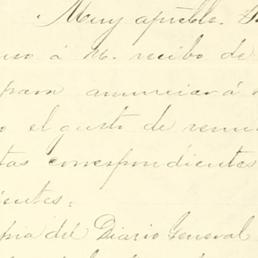 Muy apreble. S
uso á M. recibo de
para anunciar á
o el gusto de remi
tas correspondientes
ientes:
pia del Diario General